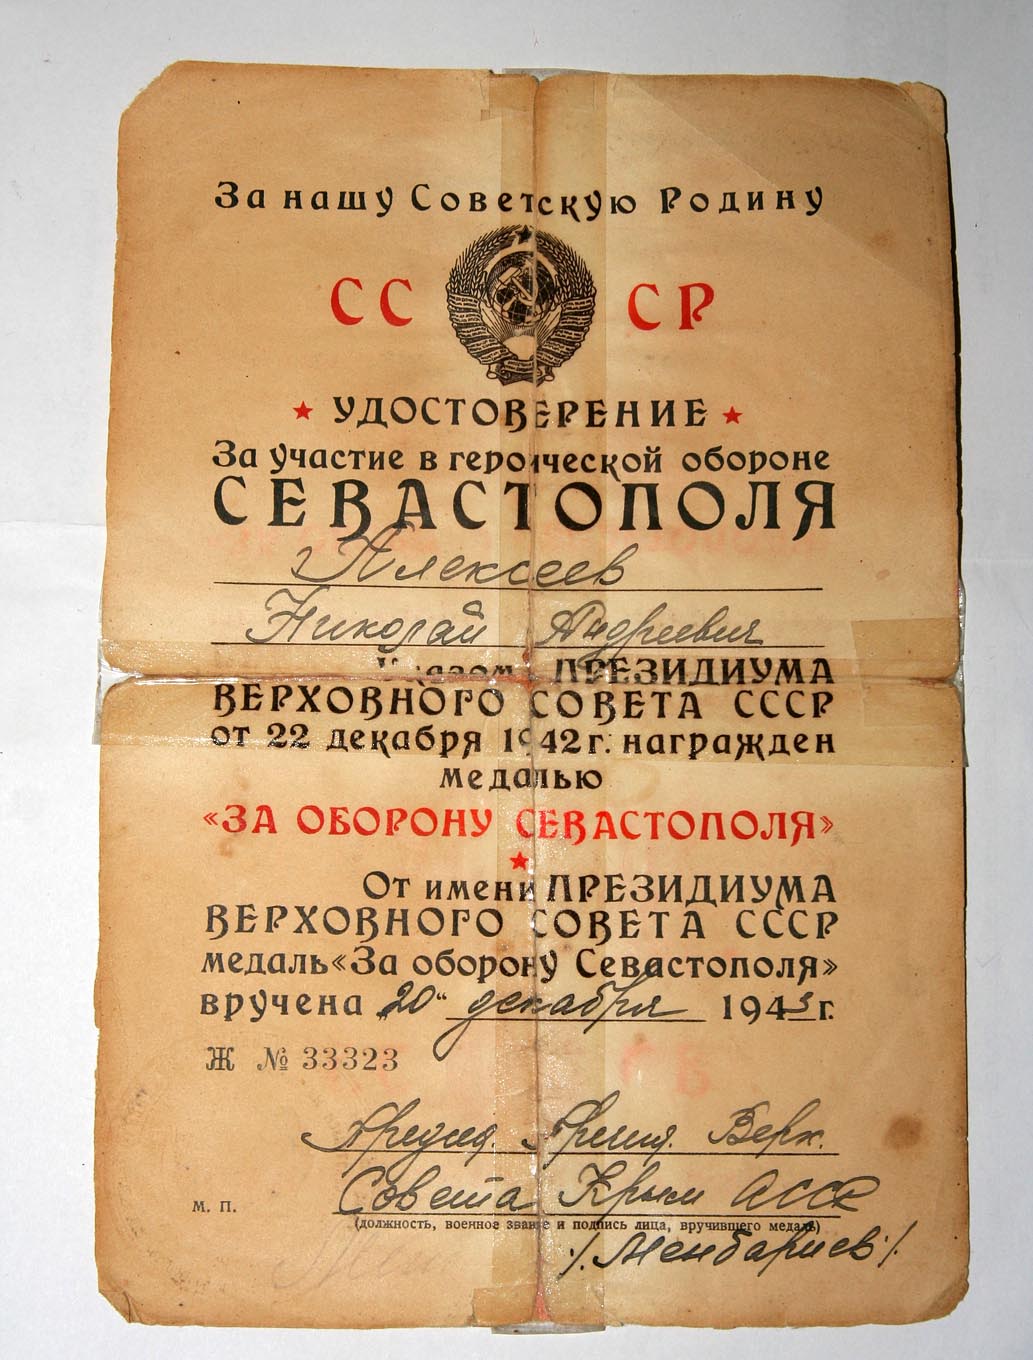 За нашу Советскую Родину
СССР
УДОСТОВЕРЕНИЕ
За участие в героической обороне
СЕВАСТОПОЛЯ
Алексеев
Николай Андреевич
Указом ПРЕЗИДИУМА
ВЕРХОВНОГО СОВЕТА СССР
от 22 декабря 1942 г. награжден
медалью
«ЗА ОБОРОНУ СЕВАСТОПОЛЯ»
От имени ПРЕЗИДИУМА
ВЕРХОВНОГО СОВЕТА СССР
медаль «За оборону Севастополя»
вручена „20“ декабря 1943 г.
Ж № 33323
Председ. Презид. Верх.
Совета Крым АССР
м. п.
(должность, военное звание и подпись лица, вручившего медаль)
/Менбариев/